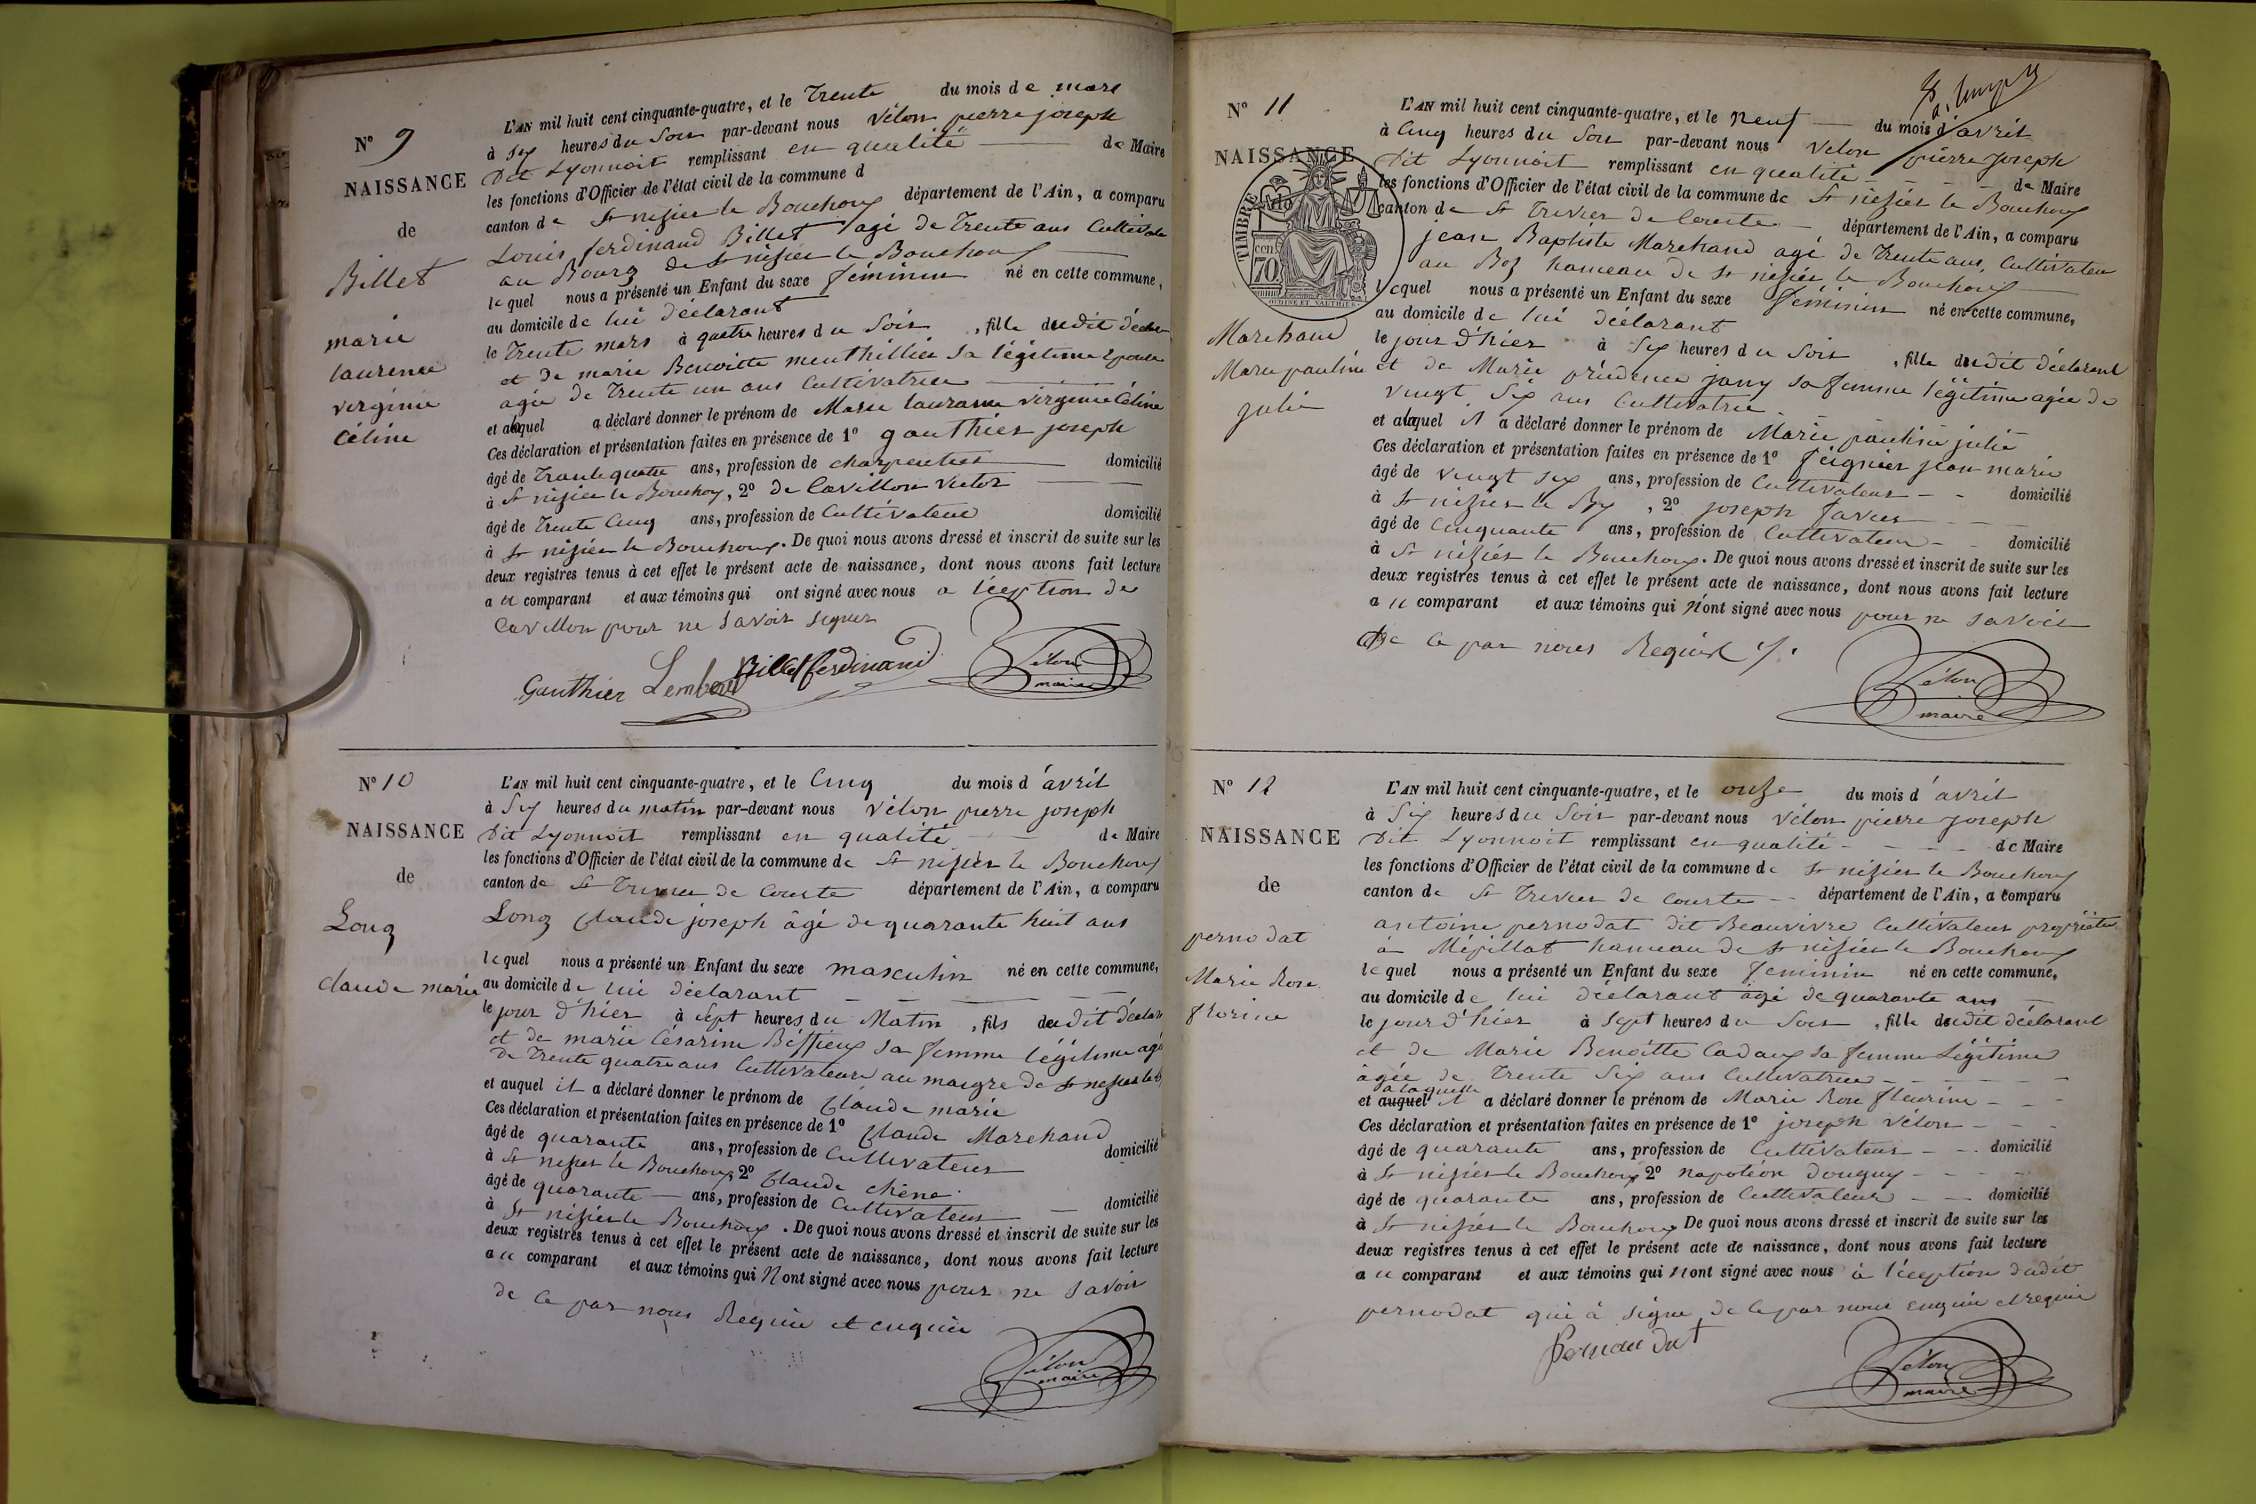 Nº 9
NAISSANCE
de
Billet
marie
laurence
virginie
Céline
L'AN mil huit cent cinquante-quatre, et le Trente du mois de mars
à six heures du Soir par-devant nous Vélon pierre joseph
Dit Lyonnoit remplissant en qualité de Maire
les fonctions d'Officier de l'état civil de la commune d
canton de St nizier le Bouchoux département de l'Ain, a comparu
Louis ferdinand Billet agé de Trente ans Cultivate
au Bourg de St nizier le Bouchoux
lequel nous a présenté un Enfant du sexe féminin né en cette commune,
au domicile de lui déclarant
le Trente mars à quatre heures du Soir, fille dudit décla
et de marie Benoitte menthillier sa légitime Epouse
agée de Trente un ans Cultivatrice
et auquel a déclaré donner le prénom de Marie laurence virginie Céline
Ces déclaration et présentation faites en présence de 1º gauthier joseph
âgé de Trante quatre ans, profession de charpentier domicilié
à St nizier le Bouchoux, 2º de Cavillon Victor
âgé de Trente Cinq ans, profession de Cultivateur domicilié
à St nizier le Bouchoux. De quoi nous avons dressé et inscrit de suite sur les
deux registres tenus à cet effet le présent acte de naissance, dont nous avons fait lecture
au comparant et aux témoins qui ont signé avec nous a l'éception de
Cavillon pour ne Savoir Signer
Gauthier Billet ferdinand Vélon
maire
Nº 10
NAISSANCE
de
Long
Claude marie
L'AN mil huit cent cinquante-quatre, et le Cinq du mois d'avril
à Six heures du matin par-devant nous Vélon pierre joseph
Dit Lyonnoit remplissant en qualité de Maire
les fonctions d'Officier de l'état civil de la commune de St nizier le Bouchoux
canton de St Trivier de Courte département de l'Ain, a comparu
Long Claude joseph âgé de quarante huit ans
lequel nous a présenté un Enfant du sexe masculin né en cette commune,
au domicile de lui déclarant
le jour d'hier à Sept heures du Matin, fils dudit déclar
et de marie Césarine Béssieux sa femme légitime agé
de Trente quatre ans Cultivateurs au maigre de St nizier le b
et auquel il a déclaré donner le prénom de Claude marie
Ces déclaration et présentation faites en présence de 1º Claude Marchand
âgé de quarante ans, profession de Cultivateur domicilié
à St nizier le Bouchoux, 2º Claude chêne
âgé de quarante ans, profession de Cultivateur domicilié
à St nizier le Bouchoux. De quoi nous avons dressé et inscrit de suite sur les
deux registres tenus à cet effet le présent acte de naissance, dont nous avons fait lecture
au comparant et aux témoins qui N'ont signé avec nous pour ne Savoir
de ce par nous Requis et enquis
Vélon
maire
Nº 11
NAISSANCE
TIMBRE
cen
70
Marchand
Marie pauline
julie
L'AN mil huit cent cinquante-quatre, et le Neuf du mois d'avril
à Cinq heures du Soir par-devant nous Vélon pierre joseph
Dit Lyonnoit remplissant en qualité de Maire
les fonctions d'Officier de l'état civil de la commune de St nizier le Bouchoux
canton de St Trivier de Courte département de l'Ain, a comparu
jean Baptiste Marchand agé de Trente ans, Cultivateur
au Boz hameau de St nizier le Bouchoux
lequel nous a présenté un Enfant du sexe féminin né en cette commune,
au domicile de lui déclarant
le jour d'hier à Six heures du Soir, fille dudit déclarant
et de Marie prudence jany sa femme légitime agée de
vingt Six ans Cultivatrice
et alaquel il a déclaré donner le prénom de Marie pauline julie
Ces déclaration et présentation faites en présence de 1º féignier jean marie
âgé de vingt six ans, profession de Cultivateur domicilié
à St nizier le Bx, 2º joseph favier
âgé de cinquante ans, profession de Cultivateur domicilié
à St nizier le Bouchoux. De quoi nous avons dressé et inscrit de suite sur les
deux registres tenus à cet effet le présent acte de naissance, dont nous avons fait lecture
au comparant et aux témoins qui N'ont signé avec nous pour ne Savoir
de ce par nous Requis
Vélon
maire
Nº 12
NAISSANCE
de
pernodat
Marie Rose
florine
L'AN mil huit cent cinquante-quatre, et le onze du mois d'avril
à Six heures du Soir par-devant nous Vélon pierre joseph
Dit Lyonnoit remplissant en qualité de Maire
les fonctions d'Officier de l'état civil de la commune de St nizier le Bouchoux
canton de St Trivier de Courte département de l'Ain, a comparu
antoine pernodat dit Beauvivre Cultivateur propriétre
à Mépillat hameau de St nizier le Bouchoux
lequel nous a présenté un Enfant du sexe feminin né en cette commune,
au domicile de lui déclarant agé de quarante ans
le jour d'hier à Sept heures du Soir, fille dudit déclarant
et de Marie Benoitte Cadoux sa femme Légitime
âgée de Trente Six ans Cultivatrice
à laquelle
et auquel il a déclaré donner le prénom de Marie Rose fleurine
Ces déclaration et présentation faites en présence de 1º joseph Vélon
âgé de quarante ans, profession de Cultivateur domicilié
à St nizier le Bouchoux 2º Napoléon Douguy
âgé de quarante ans, profession de Cultivateur domicilié
à St nizier le Bouchoux De quoi nous avons dressé et inscrit de suite sur les
deux registres tenus à cet effet le présent acte de naissance, dont nous avons fait lecture
au comparant et aux témoins qui N'ont signé avec nous à l'éception dudit
pernodat qui à signé de ce par nous enquis et requis
Pernaudat
Vélon
maire